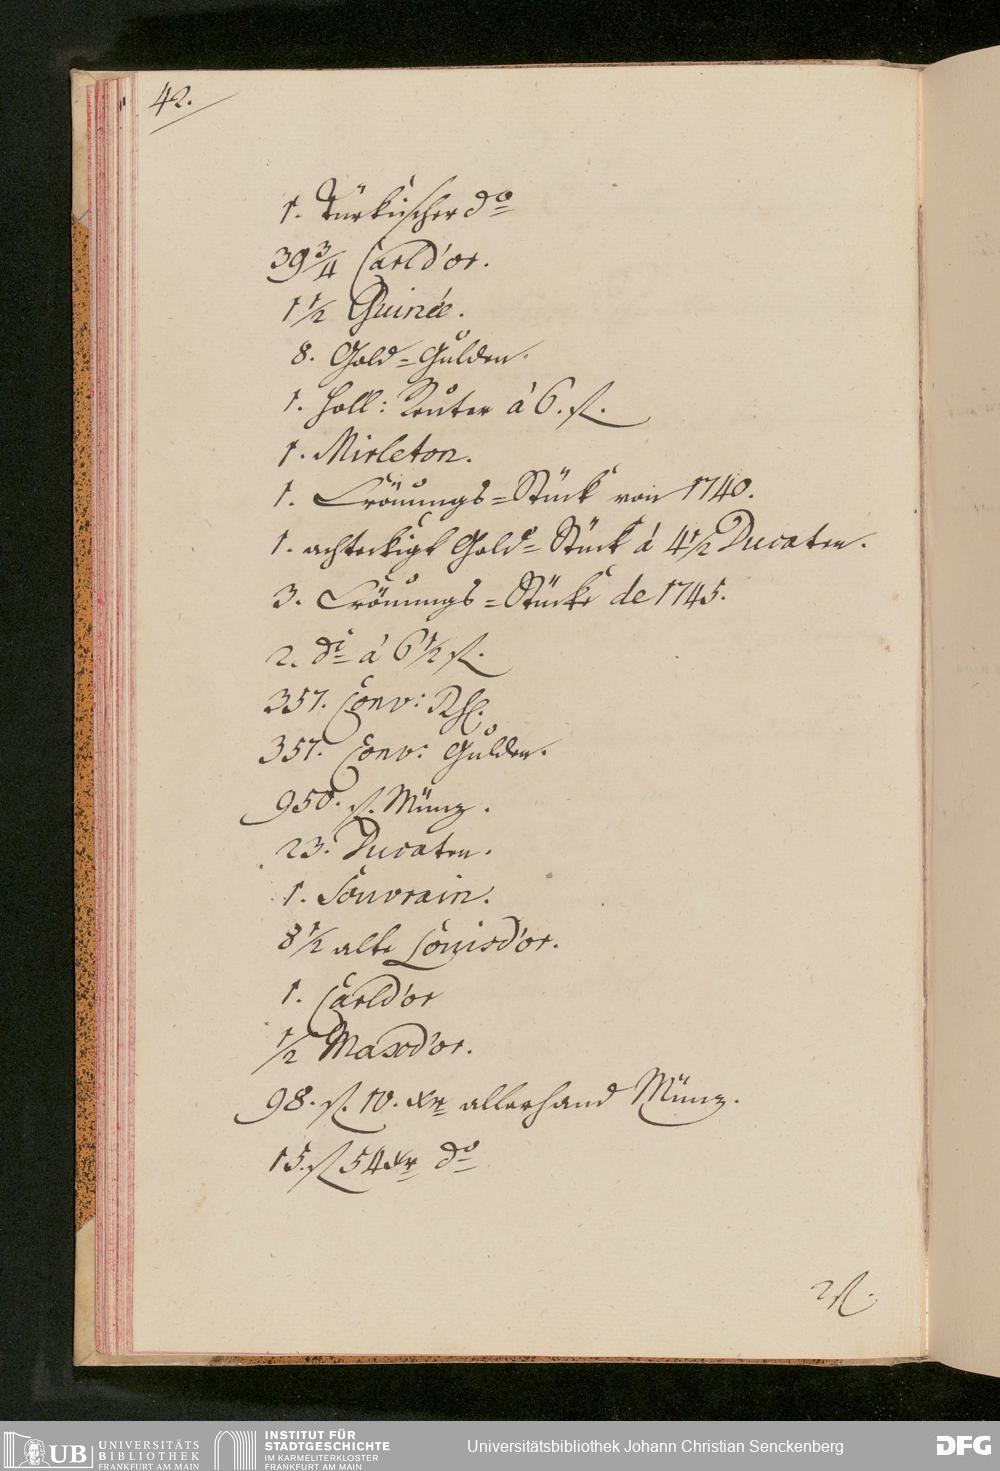 42.
1. Türkischer do
39 3/4 Carld'or.
1 1/2 Guinée.
8. Gold=Gulden.
1. Holl: Reuter à 6. fl.
1. Mirleton.
1. Crönungs=Stück von 1740.
1. achteckigt Gold=Stück à 4 1/2 Ducaten.
3. Crönungs=Stücke de 1745.
2. di à 6 1/2 fl.
357. Conv: Rthl.
357. Conv: Gulden.
950. fl. Müntz.
23. Ducaten.
1. Souvrain.
8 1/2 alte Louisd'or.
1. Carld'or
1/2 Maxd'or.
98. fl. 10. Xr allerhand Müntz.
15. fl 54 Xr do
2 fl.
UB UNIVERSITÄTS
BIBLIOTHEK
FRANKFURT AM MAIN
INSTITUT FÜR
STADTGESCHICHTE
IM KARMELITERKLOSTER
FRANKFURT AM MAIN
Universitätsbibliothek Johann Christian Senckenberg
DFG